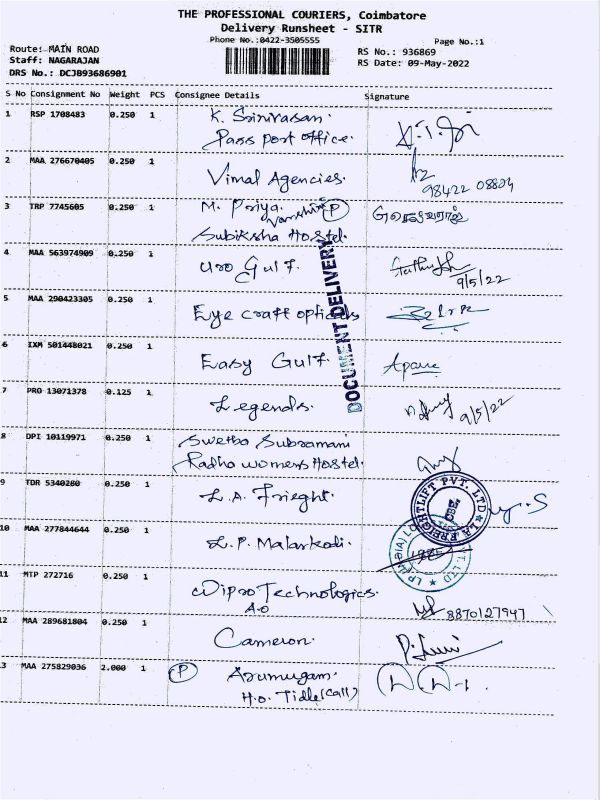 THE PROFESSIONAL COURIERS, Coimbatore
Delivery Runsheet - SITR
Phone No.:0422-3505555
Page No.:1
Route: MAIN ROAD
RS No.: 936869
Staff: NAGARAJAN
RS Date: 09-May-2022
DRS No.: DCJB93686901
S No Consignment No Weight PCS Consignee Details Signature
1 RSP 1708483 0.250 1 K. Srinivasan.
Pass port office.
2 MAA 276670405 0.250 1 Vimal Agencies.
98422 08804
3 TRP 7745605 0.250 1 M. Priya. P
Subiksha Hostel.
4 MAA 563974909 0.250 1 Uro Gulf.
9/5/22
5 MAA 290423305 0.250 1 Eye craft opticals
6 IXM 501448021 0.250 1 Easy Gulf.
7 PRO 13071378 0.125 1 Legends.
9/5/22
DOCUMENT DELIVERY
8 DPI 10119971 0.250 1 Swetha Subramani
Radha womens Hostel.
9 TDR 5340280 0.250 1 L.A. Frieght.
L.A. FREIGHTLIFT PVT. LTD
CBE.
10 MAA 277844644 0.250 1 L.P. Malarkodi.
11 MTP 272716 0.250 1 Wipro Technologies.
A.O
8870127947
12 MAA 289681804 0.250 1 Cameron.
13 MAA 275829036 2.000 1 P Arumugam.
H.O. Tidle (call)